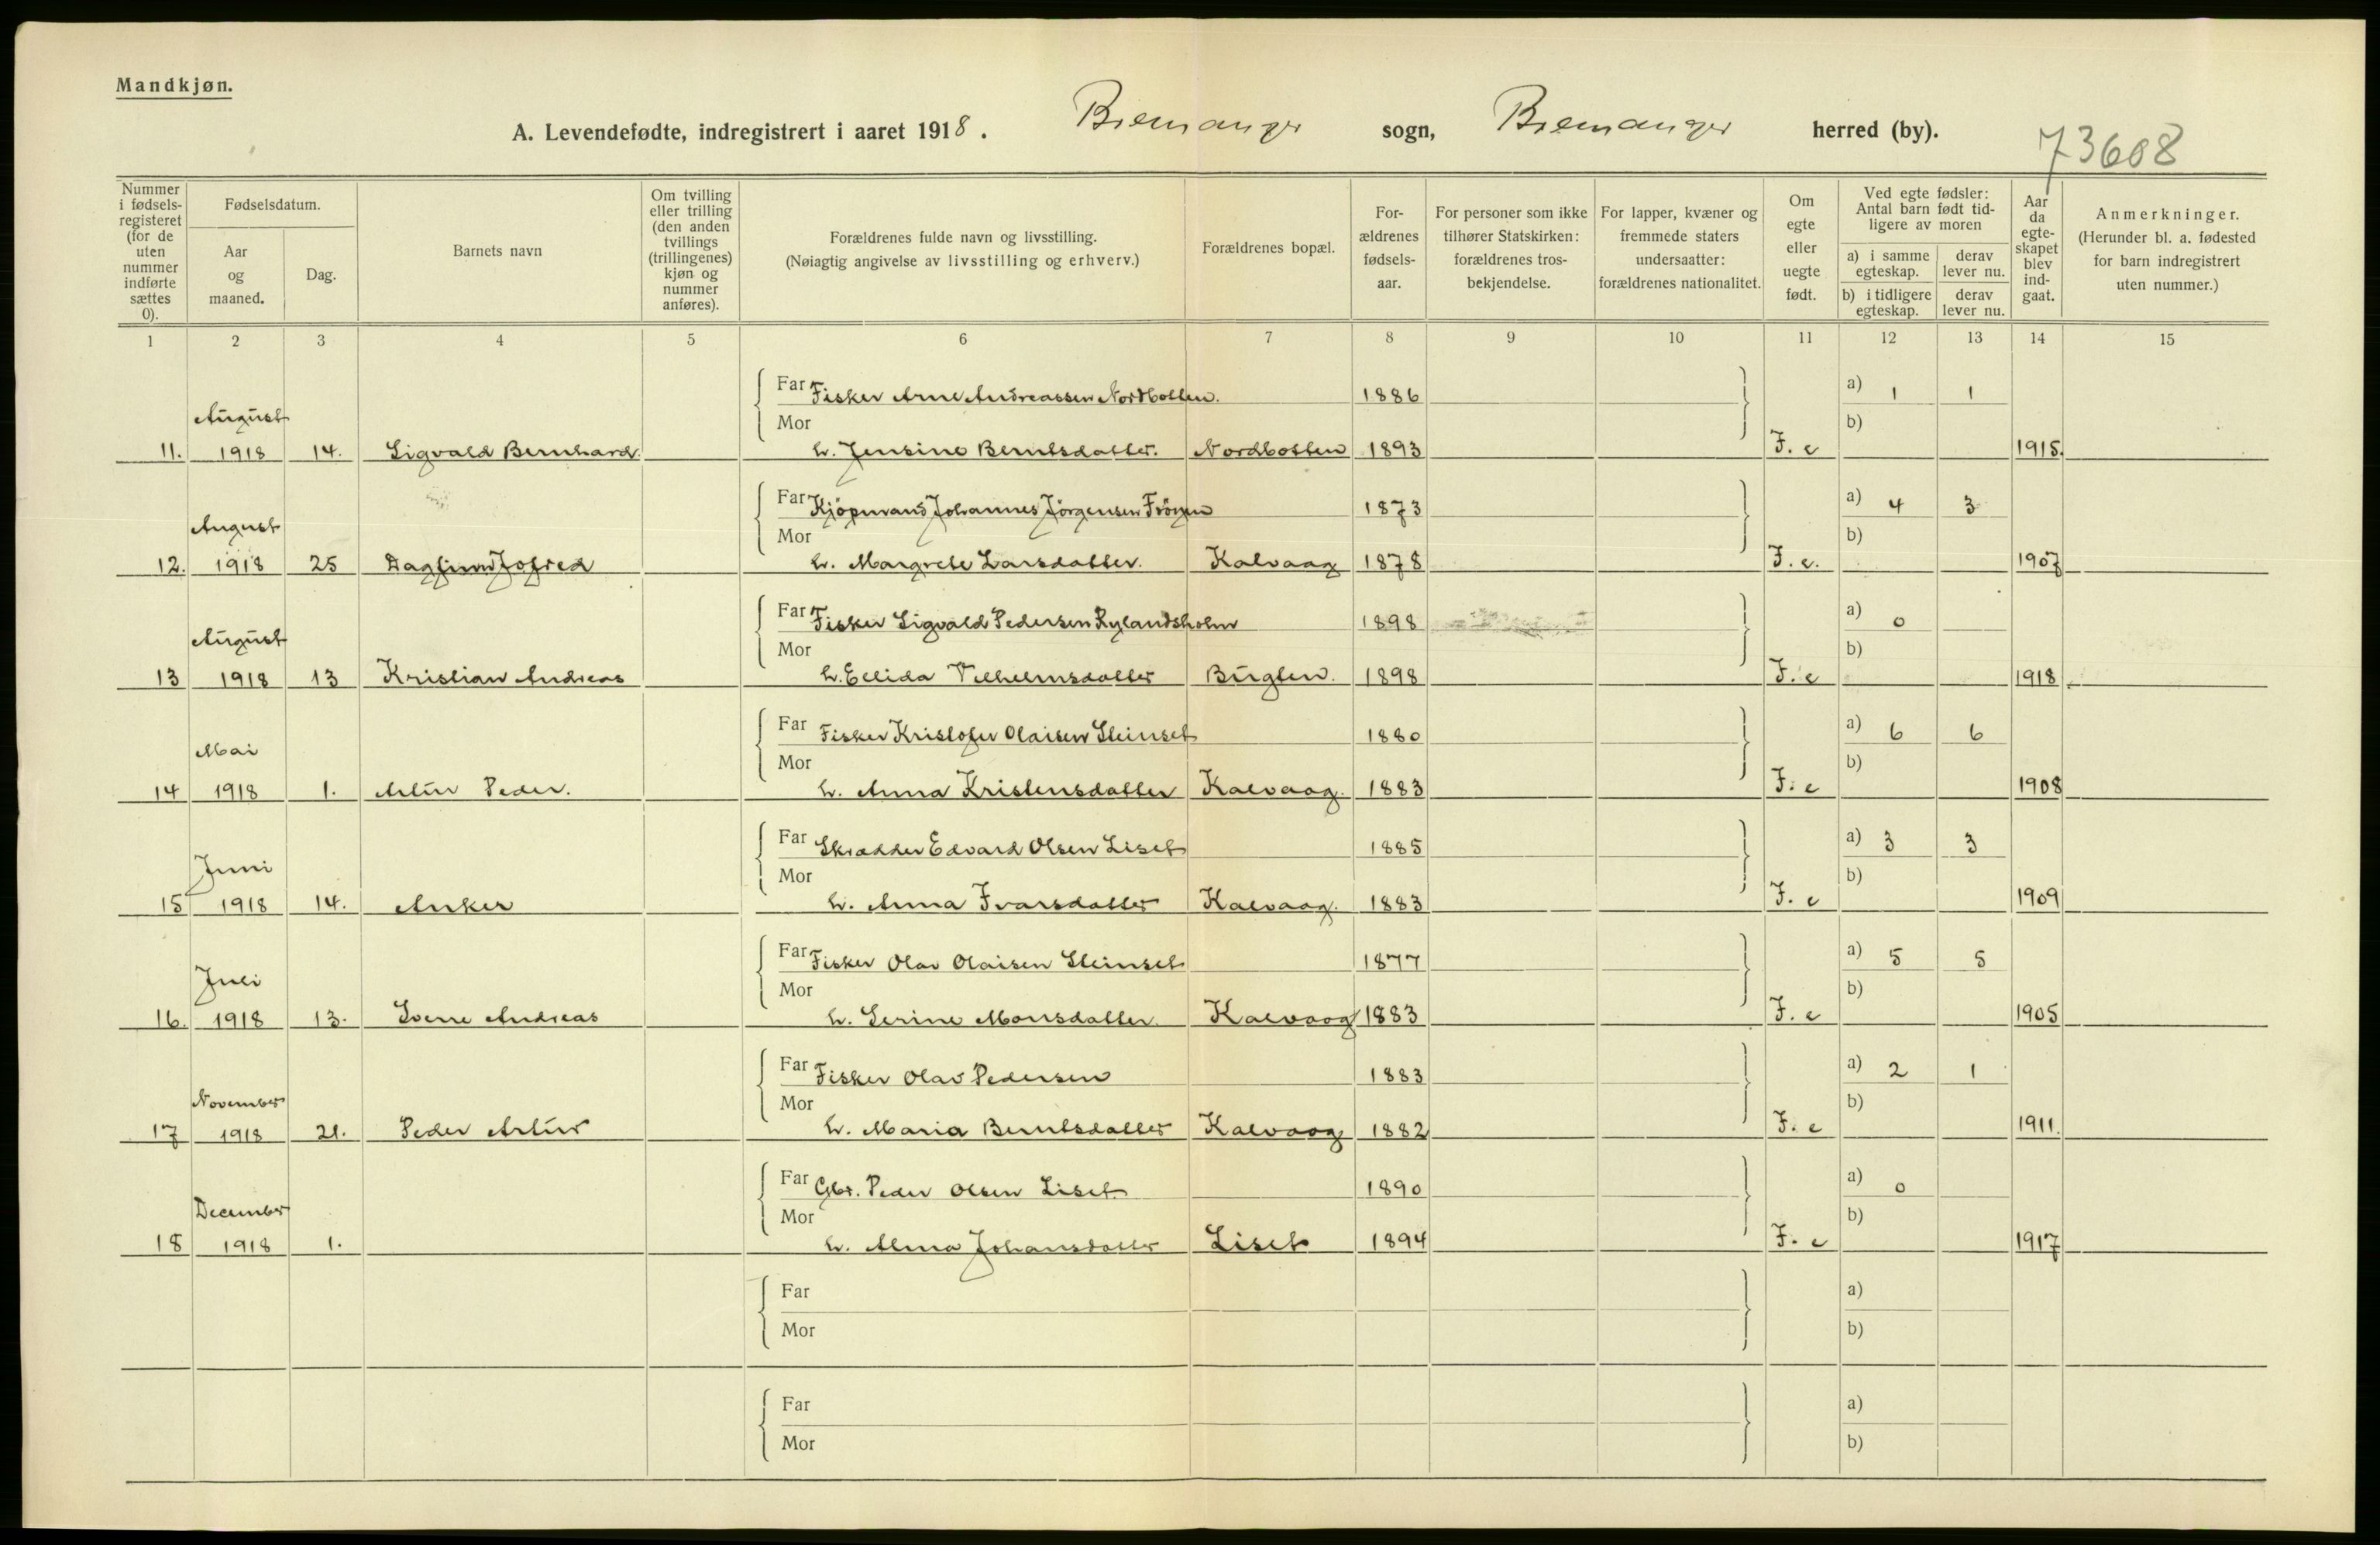 Mandkjøn.
A. Levendefødte, indregistrert i aaret 1918. Bremanger sogn, Bremanger herred (by).
73608
Nummer i fødselsregisteret (for de uten nummer indførte sættes 0).
Fødselsdatum.
Aar og maaned.
Dag.
Barnets navn
Om tvilling eller trilling (den anden tvillings (trillingenes) kjøn og nummer anføres).
Forældrenes fulde navn og livsstilling. (Nøiagtig angivelse av livsstilling og erhverv.)
Forældrenes bopæl.
Forældrenes fødselsaar.
For personer som ikke tilhører Statskirken: forældrenes trosbekjendelse.
For lapper, kvæner og fremmede staters undersaatter: forældrenes nationalitet.
Om egte eller uegte født.
Ved egte fødsler: Antal barn født tidligere av moren
a) i samme egteskap.
derav lever nu.
b) i tidligere egteskap.
derav lever nu.
Aar da egteskapet blev indgaat.
Anmerkninger. (Herunder bl. a. fødested for barn indregistrert uten nummer.)
1 2 3 4 5 6 7 8 9 10 11 12 13 14 15
Far Fisker Arne Andreassen Nordbotten. 1886 a) 1 1
August
Mor b)
11. 1918 14. Sigvald Bernhard. h. Jensine Berntsdatter. Nordbotten 1893 F. e 1915.
Far Kjöpmand Johannes Jörgensen Fröyen 1873 a) 4 3
August
Mor b)
12. 1918 25 Dagfinn Jofred h. Margrete Larsdatter. Kalvaag 1878 F. e. 1907
Far Fisker Sigvald Pedersen Rylandsholm 1898 a) 0
August
Mor b)
13 1918 13 Kristian Andreas h. Ellida Vilhelmsdatter Bugten. 1898 F. e 1918
Far Fisker Kristofer Olaisen Steinset 1880 a) 6 6
Mai
Mor b)
14 1918 1. Artur Peder. h. Anna Kristensdatter Kalvaag. 1883 F. e 1908
Far Skrædder Edvard Olsen Liset 1885 a) 3 3
Juni
Mor b)
15 1918 14. Anker h. Anna Ivarsdatter Kalvaag. 1883 F. e 1909
Far Fisker Olav Olaisen Steinset 1877 a) 5 5
Juli
Mor b)
16. 1918 13. Sverre Andreas h. Serine Monsdatter. Kalvaag 1883 F. e 1905
Far Fisker Olav Pedersen 1883 a) 2 1
November
Mor b)
17 1918 21. Peder Artur h. Maria Berntsdatter Kalvaag 1882 F. e 1911.
Far Gbr. Peder Olsen Liset 1890 a) 0
December
Mor b)
18 1918 1. h. Alma Johansdatter Liset 1894 F. e 1917
Far a)
Mor b)
Far a)
Mor b)